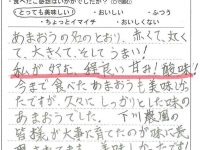 ・食べたご感想はいかがでしたか？（○で囲む）
・とっても美味しい ・おいしい ・ふつう
・ちょっとイマイチ ・おいしくない
あまおうの名のとおり、赤くて、丸くて、
大きくて、そしてうまい！
私が好む 程良い甘み！酸味！
今まで食べたあまおうも美味しかっ
たですが、久々に しっかりとした味の
あまおうでした。 下川農園の
皆様が大事に育てたのが味に表